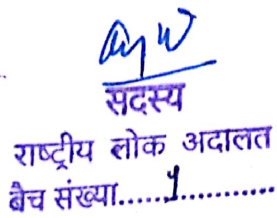 सदस्य
राष्ट्रीय लोक अदालत
बैच संख्या......1............